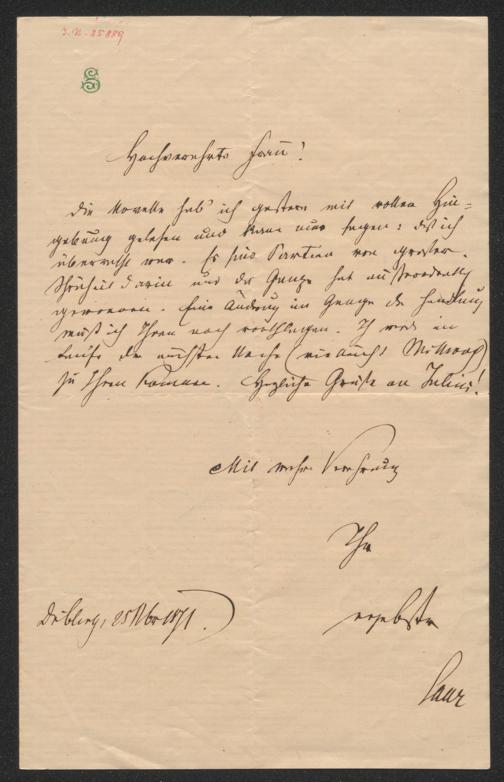 I.N. 25889
S
Hochverehrte Frau!
Die Novelle hab' ich gestern mit vollen Hin-
gebung gelesen und kann nur sagen: daß ich
überrascht war. Es sind Partien von großer
Schönheit darin und das Ganze hat außerordentlich
gewonnen. Eine Änderung im Gange der Handlung
muß ich Ihnen noch vorschlagen. Ich werde im
Laufe der nächsten Woche (vielleicht Mittwoch)
zu Ihnen kommen. Herzliche Grüße an Julius!
Mit wahrer Verehrung
Ihr
ergebenster
Saar
Döbling, 25 Nov 1871.